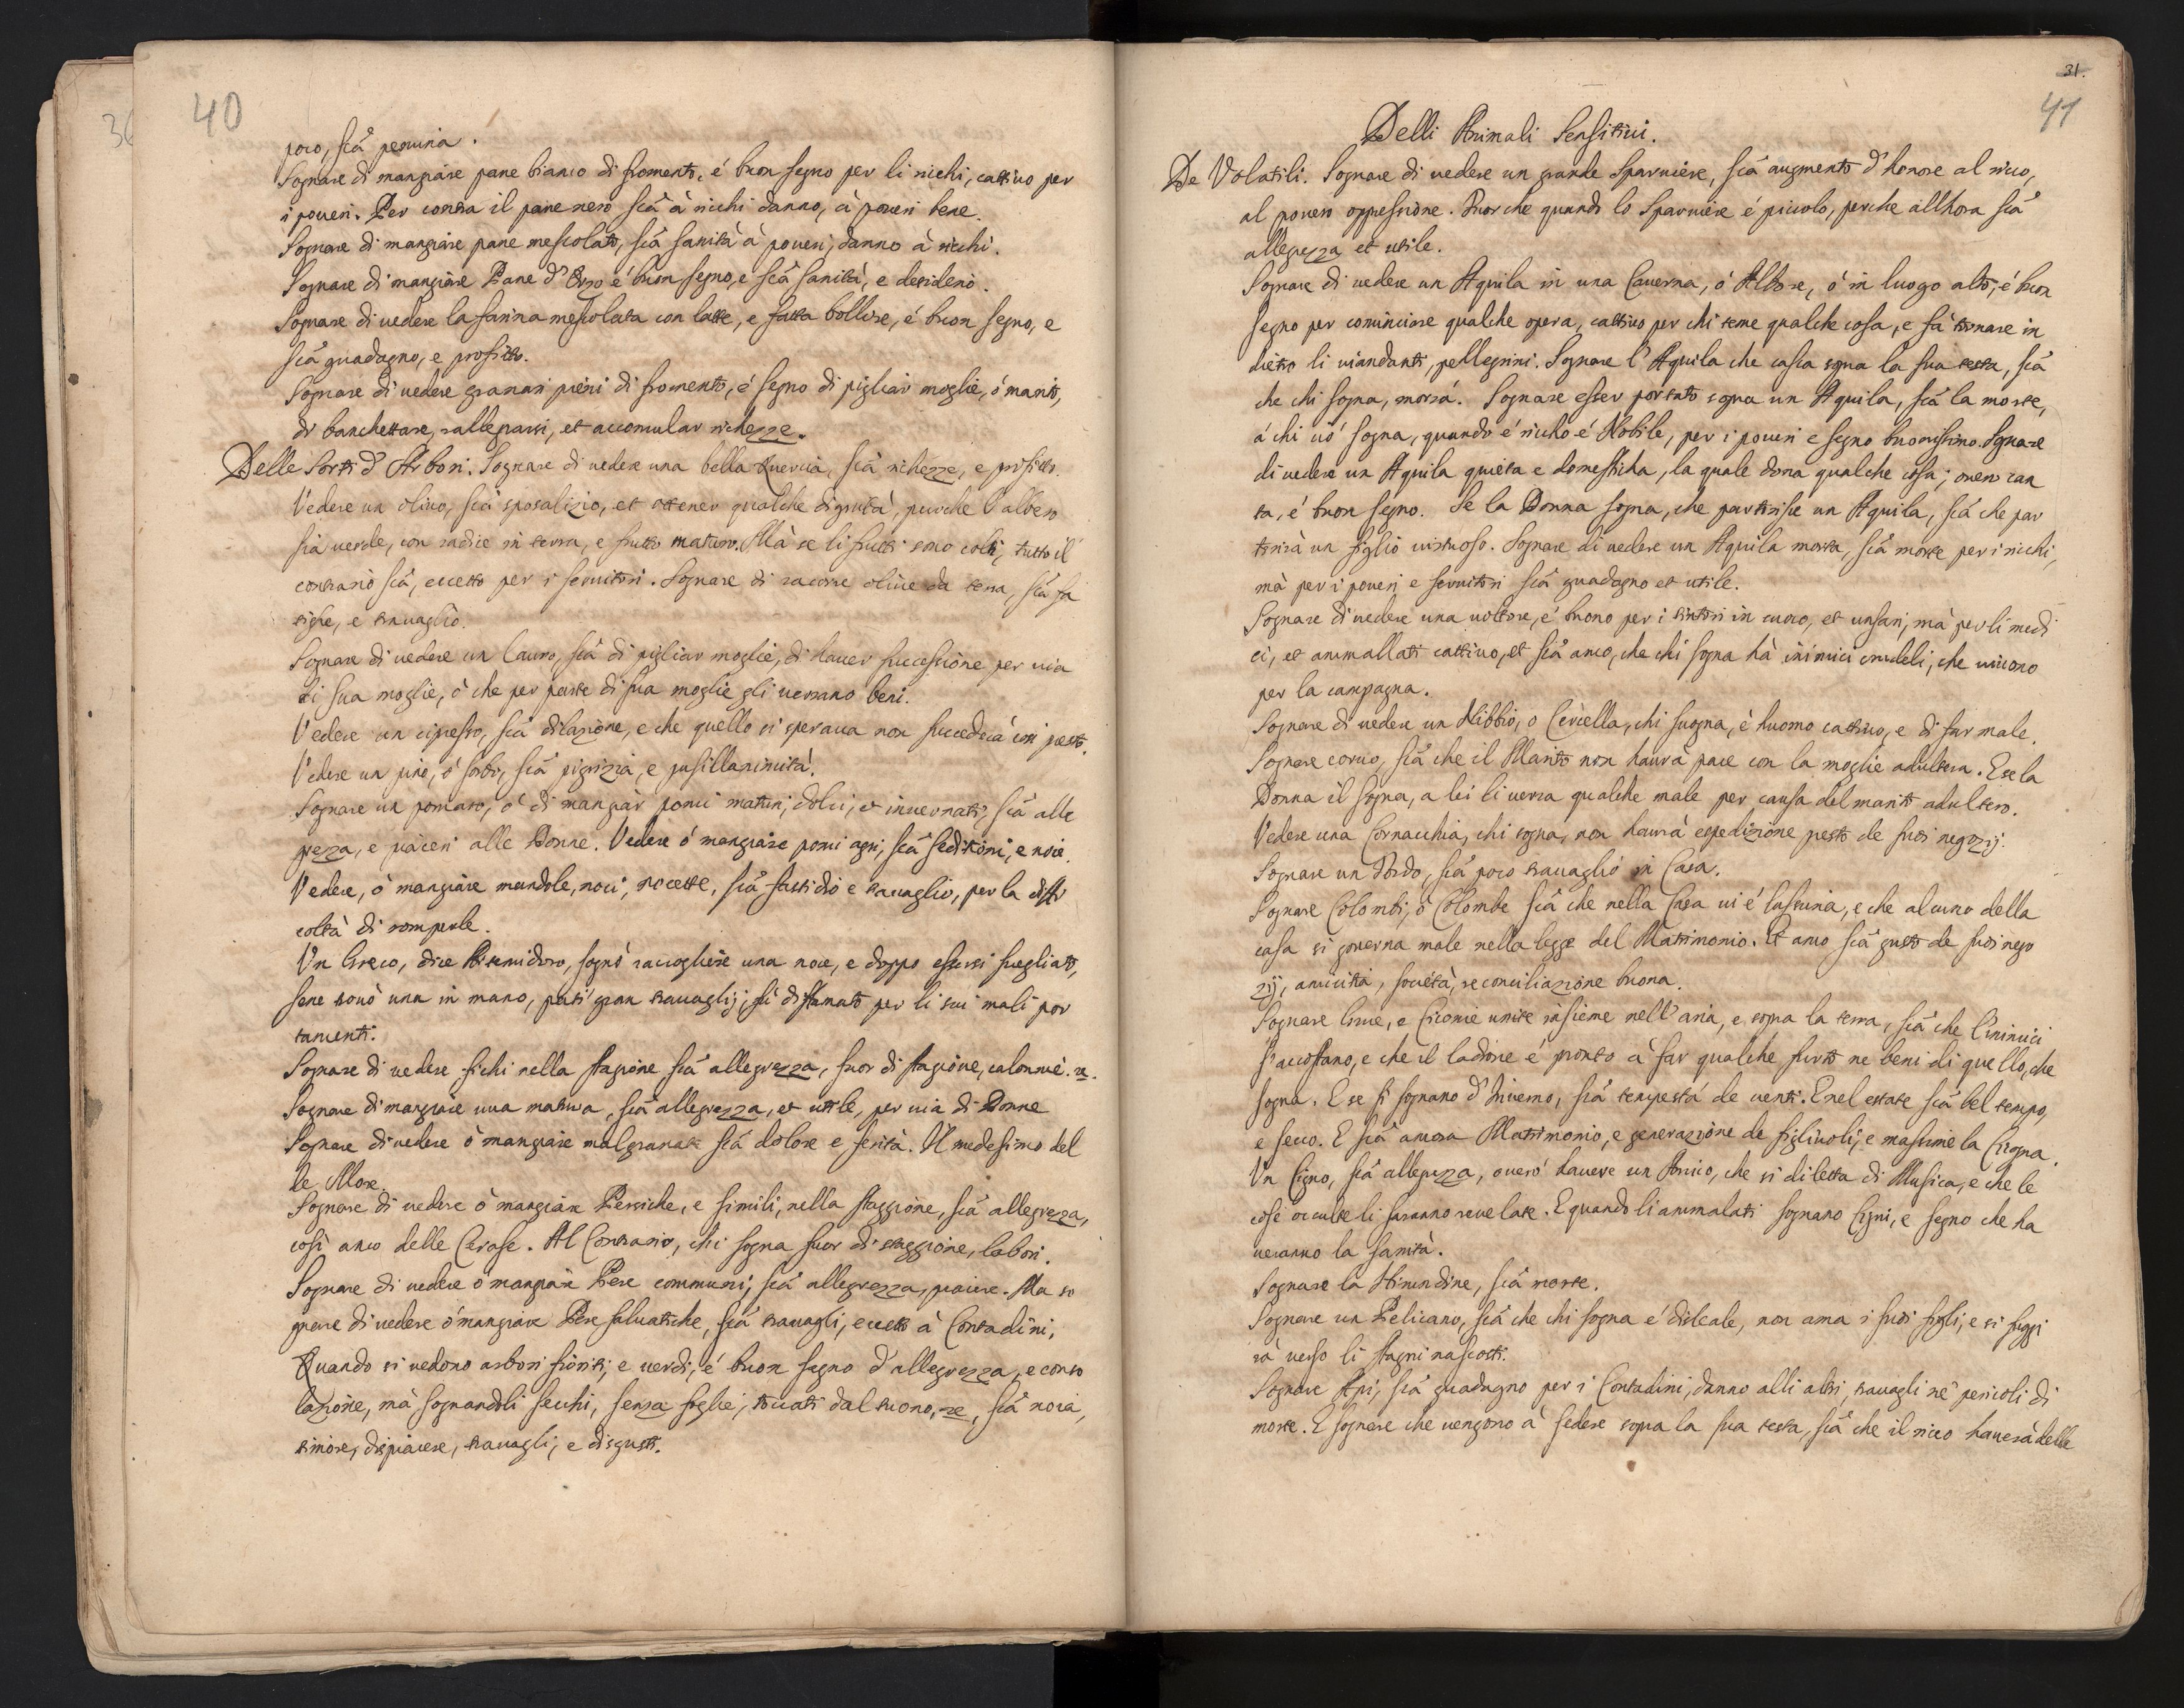 40
poco, scâ penuria.
Sognare di mangiare pane bianco di fromento, é buon segno per li ricchi, cattivo per
i poueri. Per contra il pane nero scâ à ricchi danno, à poueri bene.
Sognare di mangiare pane mescolato, scâ sanità à poueri, danno à ricchi.
Sognare di mangiare Pane d'Orzo é buon segno, e scâ sanità, e desiderio.
Sognare di vedere la farina mescolata con latte, e fatta bollire, é buon segno, e
scâ guadagno, e profitto.
Sognare di uedere granari pieni di fromento, é segno di pigliar moglie, ó marito,
di banchettare, rallegrarsi, et accomular richezze.
Delle Sorti d'Arbori. Sognare di uedere una bella Quercia, scâ richezze, e profitto.
Vedere un oliuo, scâ sposalizio, et ottener qualche dignità, purche l'albero
sia uerde, con radice in terra, e frutto maturo. Mà se li frutti sono colti, tutto il
contrario scâ, eccetto per i seruitori. Sognare di racorre oliue da terra, scâ fa
tighe, e trauaglio.
Sognare di uedere un lauro, scâ di pigliar moglie, di hauer successione per uia
di sua moglie, ó che per parte di sua moglie gli uerrano beni.
Vedere un cipresso, scâ dilazione, e che quello si speraua non succederà così presto.
Vedere un pino, ó sorbo, scâ pigrizia, e pusillanimità.
Sognare un pomaro, ó di mangiar pomi maturi, dolci, et inuernati, scâ alle
grezza, e piaceri alle Donne. Vedere ó mangiare pomi agri, scâ seditioni, e noie.
Vedere, ó mangiare mandole, noci, nocette, scâ fastidio e trauaglio, per la diffi
coltà di romperle.
Vn Greco, dice Artemidoro, sognò raccogliere una noce, e doppo essersi suegliato,
sene trouò una in mano, patì gran trauaglij, fù disfamato per li sui mali por
tamenti.
Sognare di uedere fichi nella stagione scâ allegrezza, fuor di stagione, calonnie. &c.
Sognare di mangiare uua matura, scâ allegrezza, et utile, per uia di Donne
Sognare di uedere ó mangiare malgranate scâ dolore e serità. Il medesimo del
le More.
Sognare di uedere ó mangiare Persiche, e simili, nella staggione, scâ allegrezza,
così anco delle Cerase. Al Contrario, chi sogna fuor di staggione, labori.
Sognare di uedere ó mangiare Pere communi, scâ allegrezza, piacere. Ma so
gnare di uedere ó mangiare Pere saluatiche, scâ trauagli, eccetto à Contadini,
Quando si uedono arbori fioriti, e uerdi, é buon segno d'allegrezza, e conso
lazione, mà sognandoli secchi, senza foglie, toccati dal tuono, &c, scâ noia,
timore, dispiacere, trauagli, e disgusti.
31.
41
Delli Animali Sensitiui.
De Volatili. Sognare di uedere un grande Sparuiere, scâ augmento d'honore al ricco,
al pouero oppressione. Fuor che quando lo Sparuiere é piccolo, perche allhora scâ
allegrezza et utile.
Sognare di uedere un Aquila in una Cauerna, ó Albore, ó in luogo alto, é buon
segno per cominciare qualche opera, cattiuo per chi teme qualche cosa, e fà tornare in
dietro li uiandanti, pellegrini. Sognare l'Aquila che casca sopra la sua testa, scâ
che chi sogna, morrá. Sognare esser portato sopra un Aquila, scâ la morte,
á chi ció sogna, quando é riccho é Nobile, per i poueri e segno buonissimo. Sognare
di uedere un Aquila quieta e domesticha, la quale dona qualche cosa; ouero can
ta, é buon segno. Se la Donna sogna, che partorisce un Aquila, scâ che par
torirà un figlio uirtuoso. Sognare di uedere un Aquila morta, scâ morte per i ricchi,
mà per i poueri e seruitori scâ guadagno et utile.
Sognare di uedere una uoltore, é buono per i tintori in cuoco, et uasari, mà per li medi
ci, et ammallati cattiuo, et scâ anco, che chi sogna hà inimici crudeli, che uiuono
per la campagna.
Sognare di uedere un Nibbio, o Cercella, chi suogna, é huomo cattiuo, e di far male.
Sognare coruo, scâ che il Marito non haurà pace con la moglie adultera. E se la
Donna il sogna, a lei li uerra qualche male per causa del marito adultero.
Vedere una Cornacchia, chi sogna, non haurà espedizione presto de suoi negozij.
Sognare un Tordo, scâ poco trauaglio in Casa.
Sognare Colombi, ó Colombe scâ che nella Casa ui é lasciuia, e che alcuno della
casa si gouerna male nella legge del Matrimonio. Et anco scâ gusto de suoi nego
zij, amicitia, società, reconciliazione buona.
Sognare Grue, e Ciconie unite insieme nell'aria, e sopra la terra, scâ che l'inimici
s'accostano, e che il ladrone é pronto à far qualche furto ne beni di quello, che
sogna. E se si sognano d'Inuerno, scâ tempestá de uenti. E nel estate scâ bel tempo,
e secco. E scâ ancora Matrimonio, e generazione de figliuoli, e massime la Cicogna.
Vn Cigno, scâ allegrezza, oueró hauere un Amico, che si diletta di Musica, e che le
cose occulte li saranno reuelate. E quando li ammalati sognano Cigni, e segno che ha
ueranno la sanità.
Sognare la Hirundine, scâ morte.
Sognare un Pelicano, scâ che chi sogna é disleale, non ama i suoi figli, e si fuggi
rà uerso li stagni nascosti.
Sognare Api, scâ guadagno per i Contadini, danno alli altri, trauagli ne' pericoli di
morte. E sognare che uengono à sedere sopra la sua testa, scâ che il ricco hauerà delle